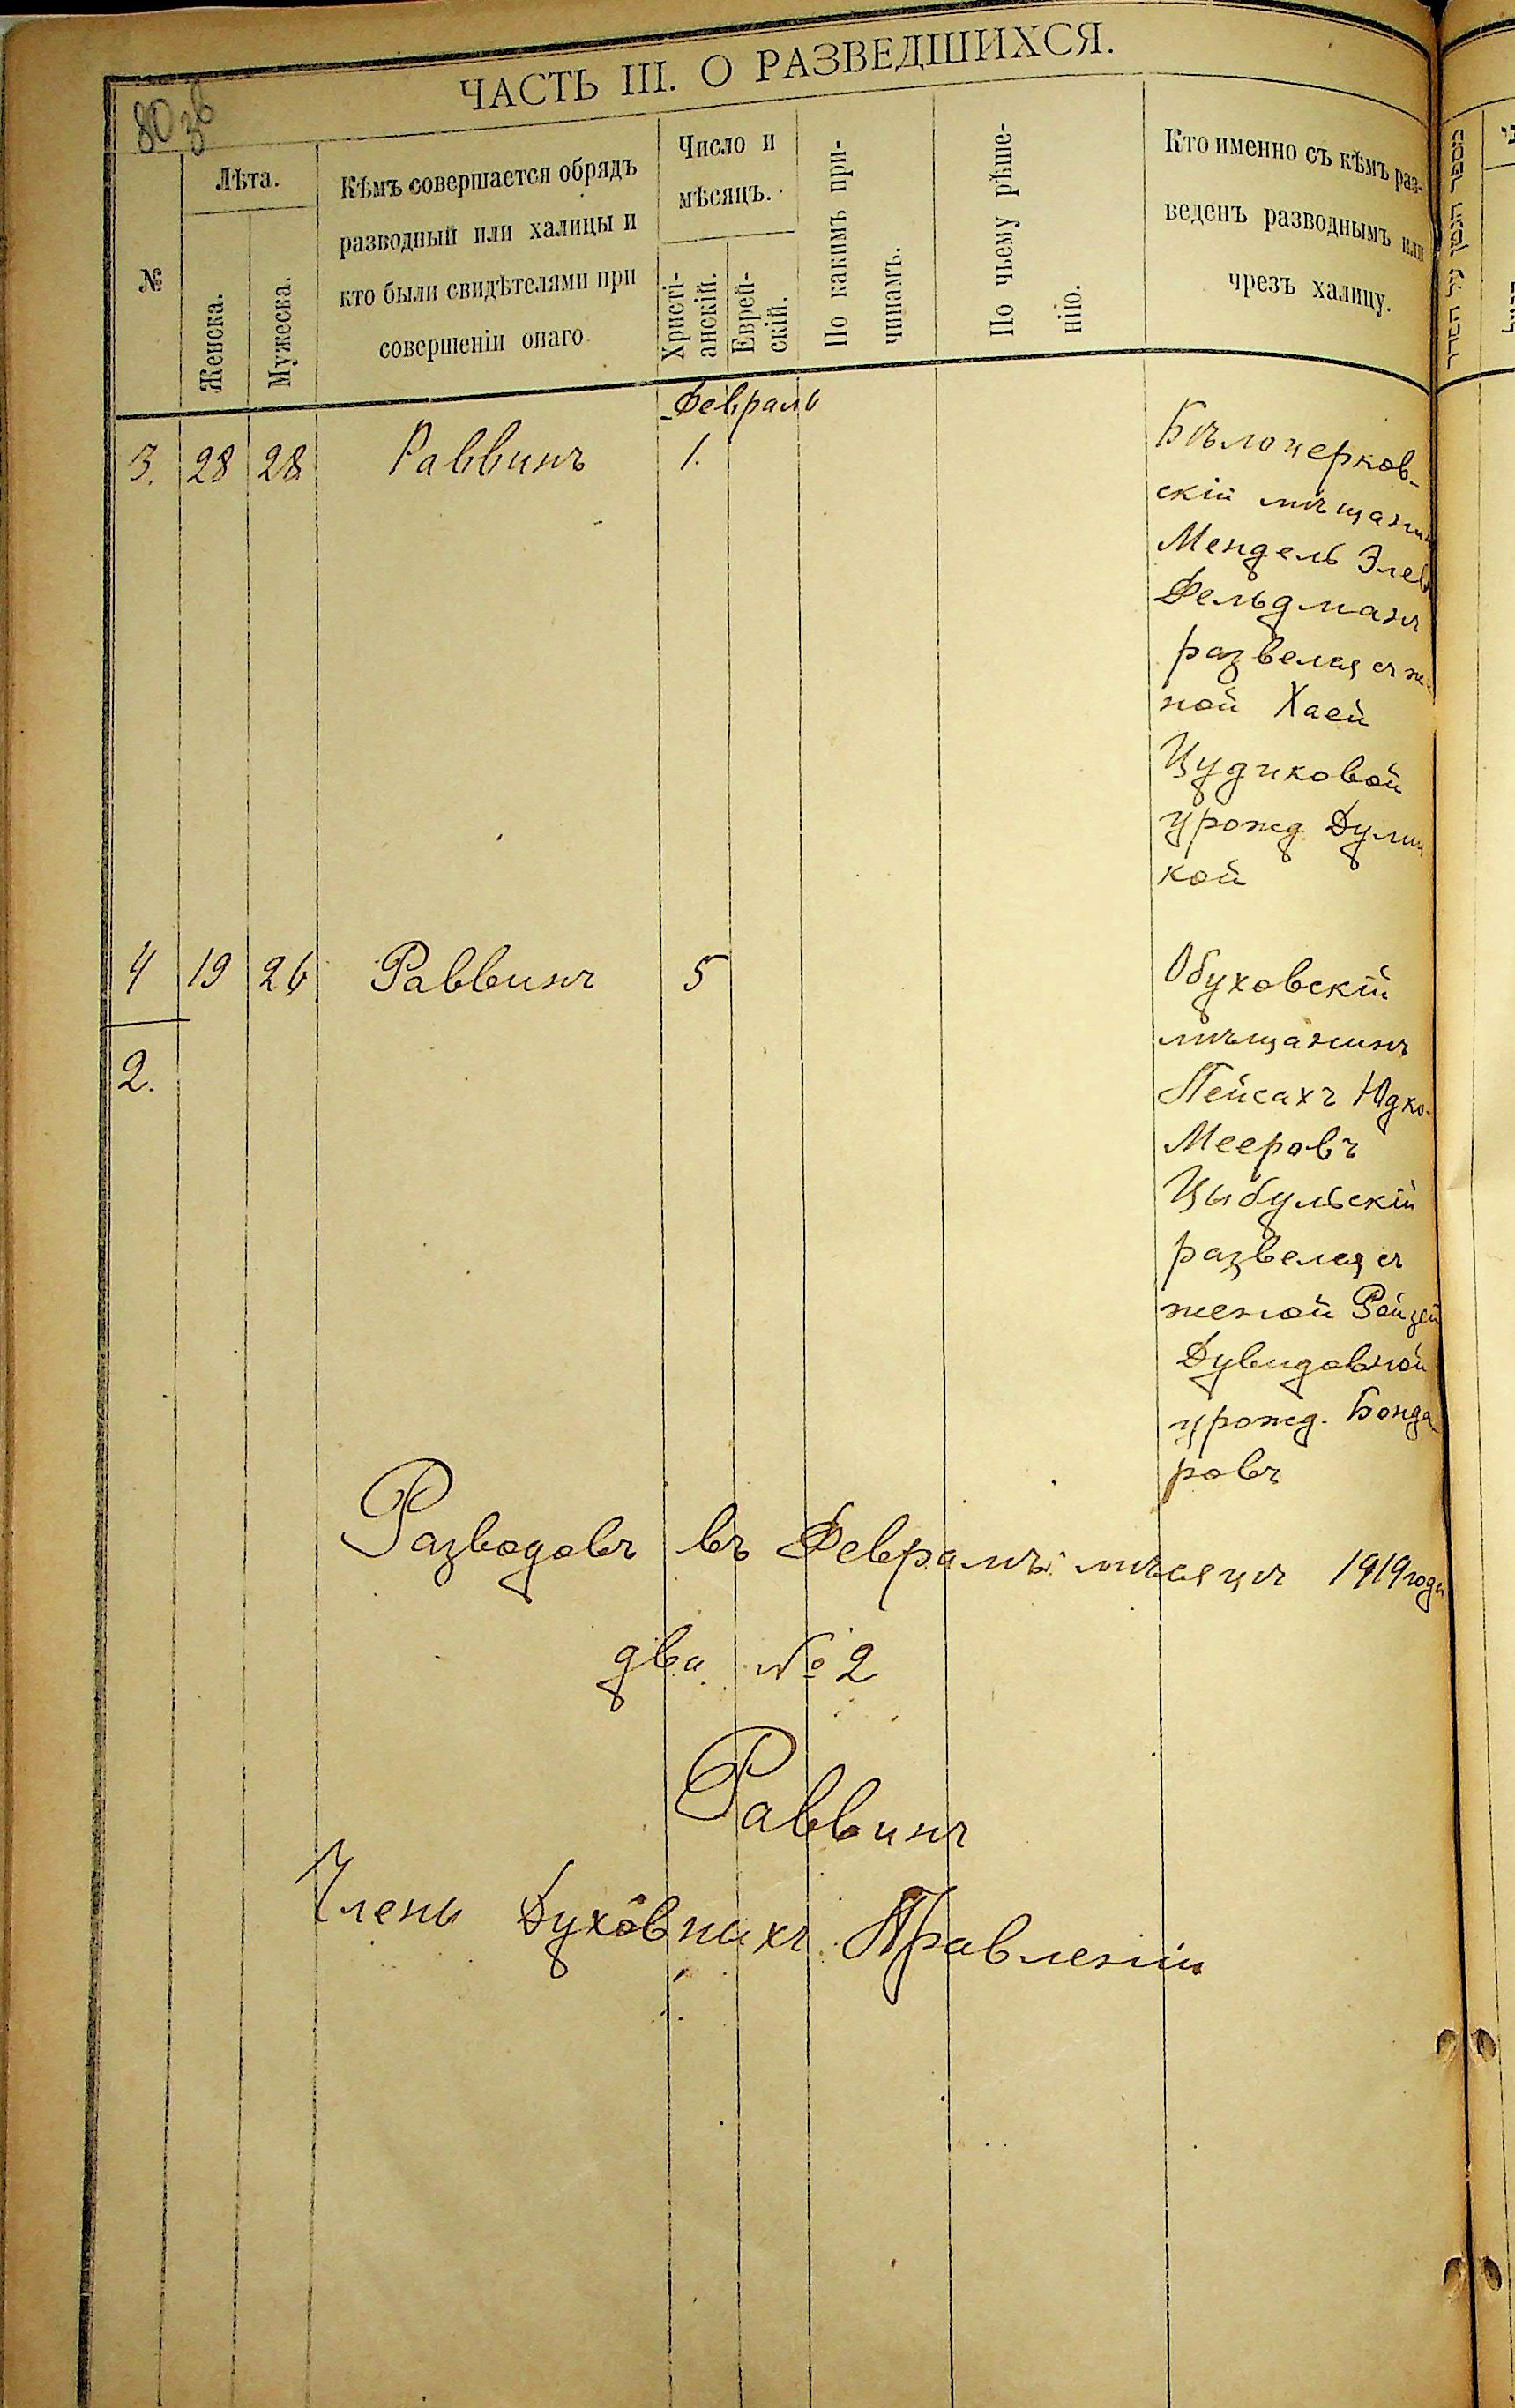 80 зв
ЧАСТЬ III. О РАЗВЕДШИХСЯ.
№
Лѣта.
Женска.
Мужеска.
Кѣмъ совершается обрядъ
разводный или халицы и
кто были свидѣтелями при
совершеніи онаго
Число и
мѣсяцъ.
Христі-
анскій.
Еврей-
скій.
По какимъ при-
чинамъ.
По чьему рѣше-
нію.
Кто именно съ кѣмъ раз-
веденъ разводнымъ или
чрезъ халицу.
Февраль
3. 28 28 Раввинъ 1.
Бѣлоцерков-
скій мѣщанин
Мендель Элев
Фельдманъ
развелся съ же-
ной Хаей
Цудиковой
урожд. Дулиц
кой
4 19 26 Раввинъ 5
2.
Обуховскій
мѣщанинъ
Пейсахъ Юдко-
Мееровъ
Цыбульскій
развелся съ
женой Рейзей
Дувидовной
урожд. Бонда-
ровъ
Разводовъ въ Февралѣ мѣсяцѣ 1919 года
два № 2
Раввинъ
Члены Духовныхъ Правленій